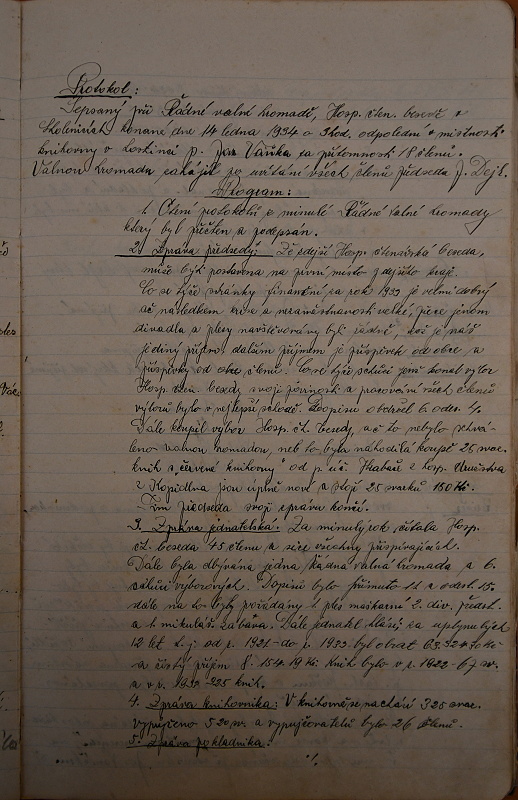 Protokol:
Sepsaný při Řádné valné hromadě, Hosp. čten. besedě v
konané dne 14 ledna 1934 o 3 hod. odpolední v místnosti
knihovny v hostinci p. Jana Vaňka za přítomnosti 18 členů.
Valnou hromadu zahájil po uvítání všech členů předseda J. Dejl.
Program:
1. Čtení protokolů z minulé Řádné valné hromady
který byl přečten a podepsán.
2. Zpráva předsedy: Zdejší Hosp. čtenářská beseda,
může býti postavena na první místo zdejšího kraje.
Co se týče stránky finanční za rok 1933 je velmi dobrý
ač následkem krise a nezaměstnanosti velké, přece jenom
divadla a plesy navštěvovány byly řádně, což je náš
jediný příjem dalším příjmem je příspěvek od obce a
příspěvky od členů. Co se týče schůzí jenž konal výbor
Hosp. čten. besedy svoji povinnost a pracování všech členů
výboru bylo v nejlepší schodě. Dopisů obdržel 6. odes. 4.
Dále koupil výbor Hosp. čt. besedy, ač to nebylo schvá-
leno valnou hromadou, neb to byla náhodilá koupě 25 svaz.
knih z "červené knihovny" od p. uč. z hosp. družstva
z Kopidlna jsou úplně nové a stojí 25 svazků 150 Kč.
Tím předseda svoji zprávu končí.
3. Zpráva jednatelská: Za minulý rok čítala Hosp.
čt. beseda 45 členů a sice všechny přispívajících.
Dále byla odbývána jedna řádná valná hromada a 6.
schůzí výborových. Dopisů bylo přijmuto 11. a odesl. 15.
dále na to byly pořádány 1 ples maškarní 2. div. předst.
a 1. mikuláš. zábava. Dále jednatel hlásí, za uplynulých
12 let t. j. od r. 1921 - do r. 1933 byl obrat
a čistý příjem Knih bylo v r. 1922 - 67 sv.
a v r. 1933 - 325 knih.
4. Zpráva knihovníka: V knihovně se nachází 325 svaz.
vypůjčeno 520 sv. a vypujčovatelů bylo 26 členů.
5. Zpráva pokladníka:
·/.